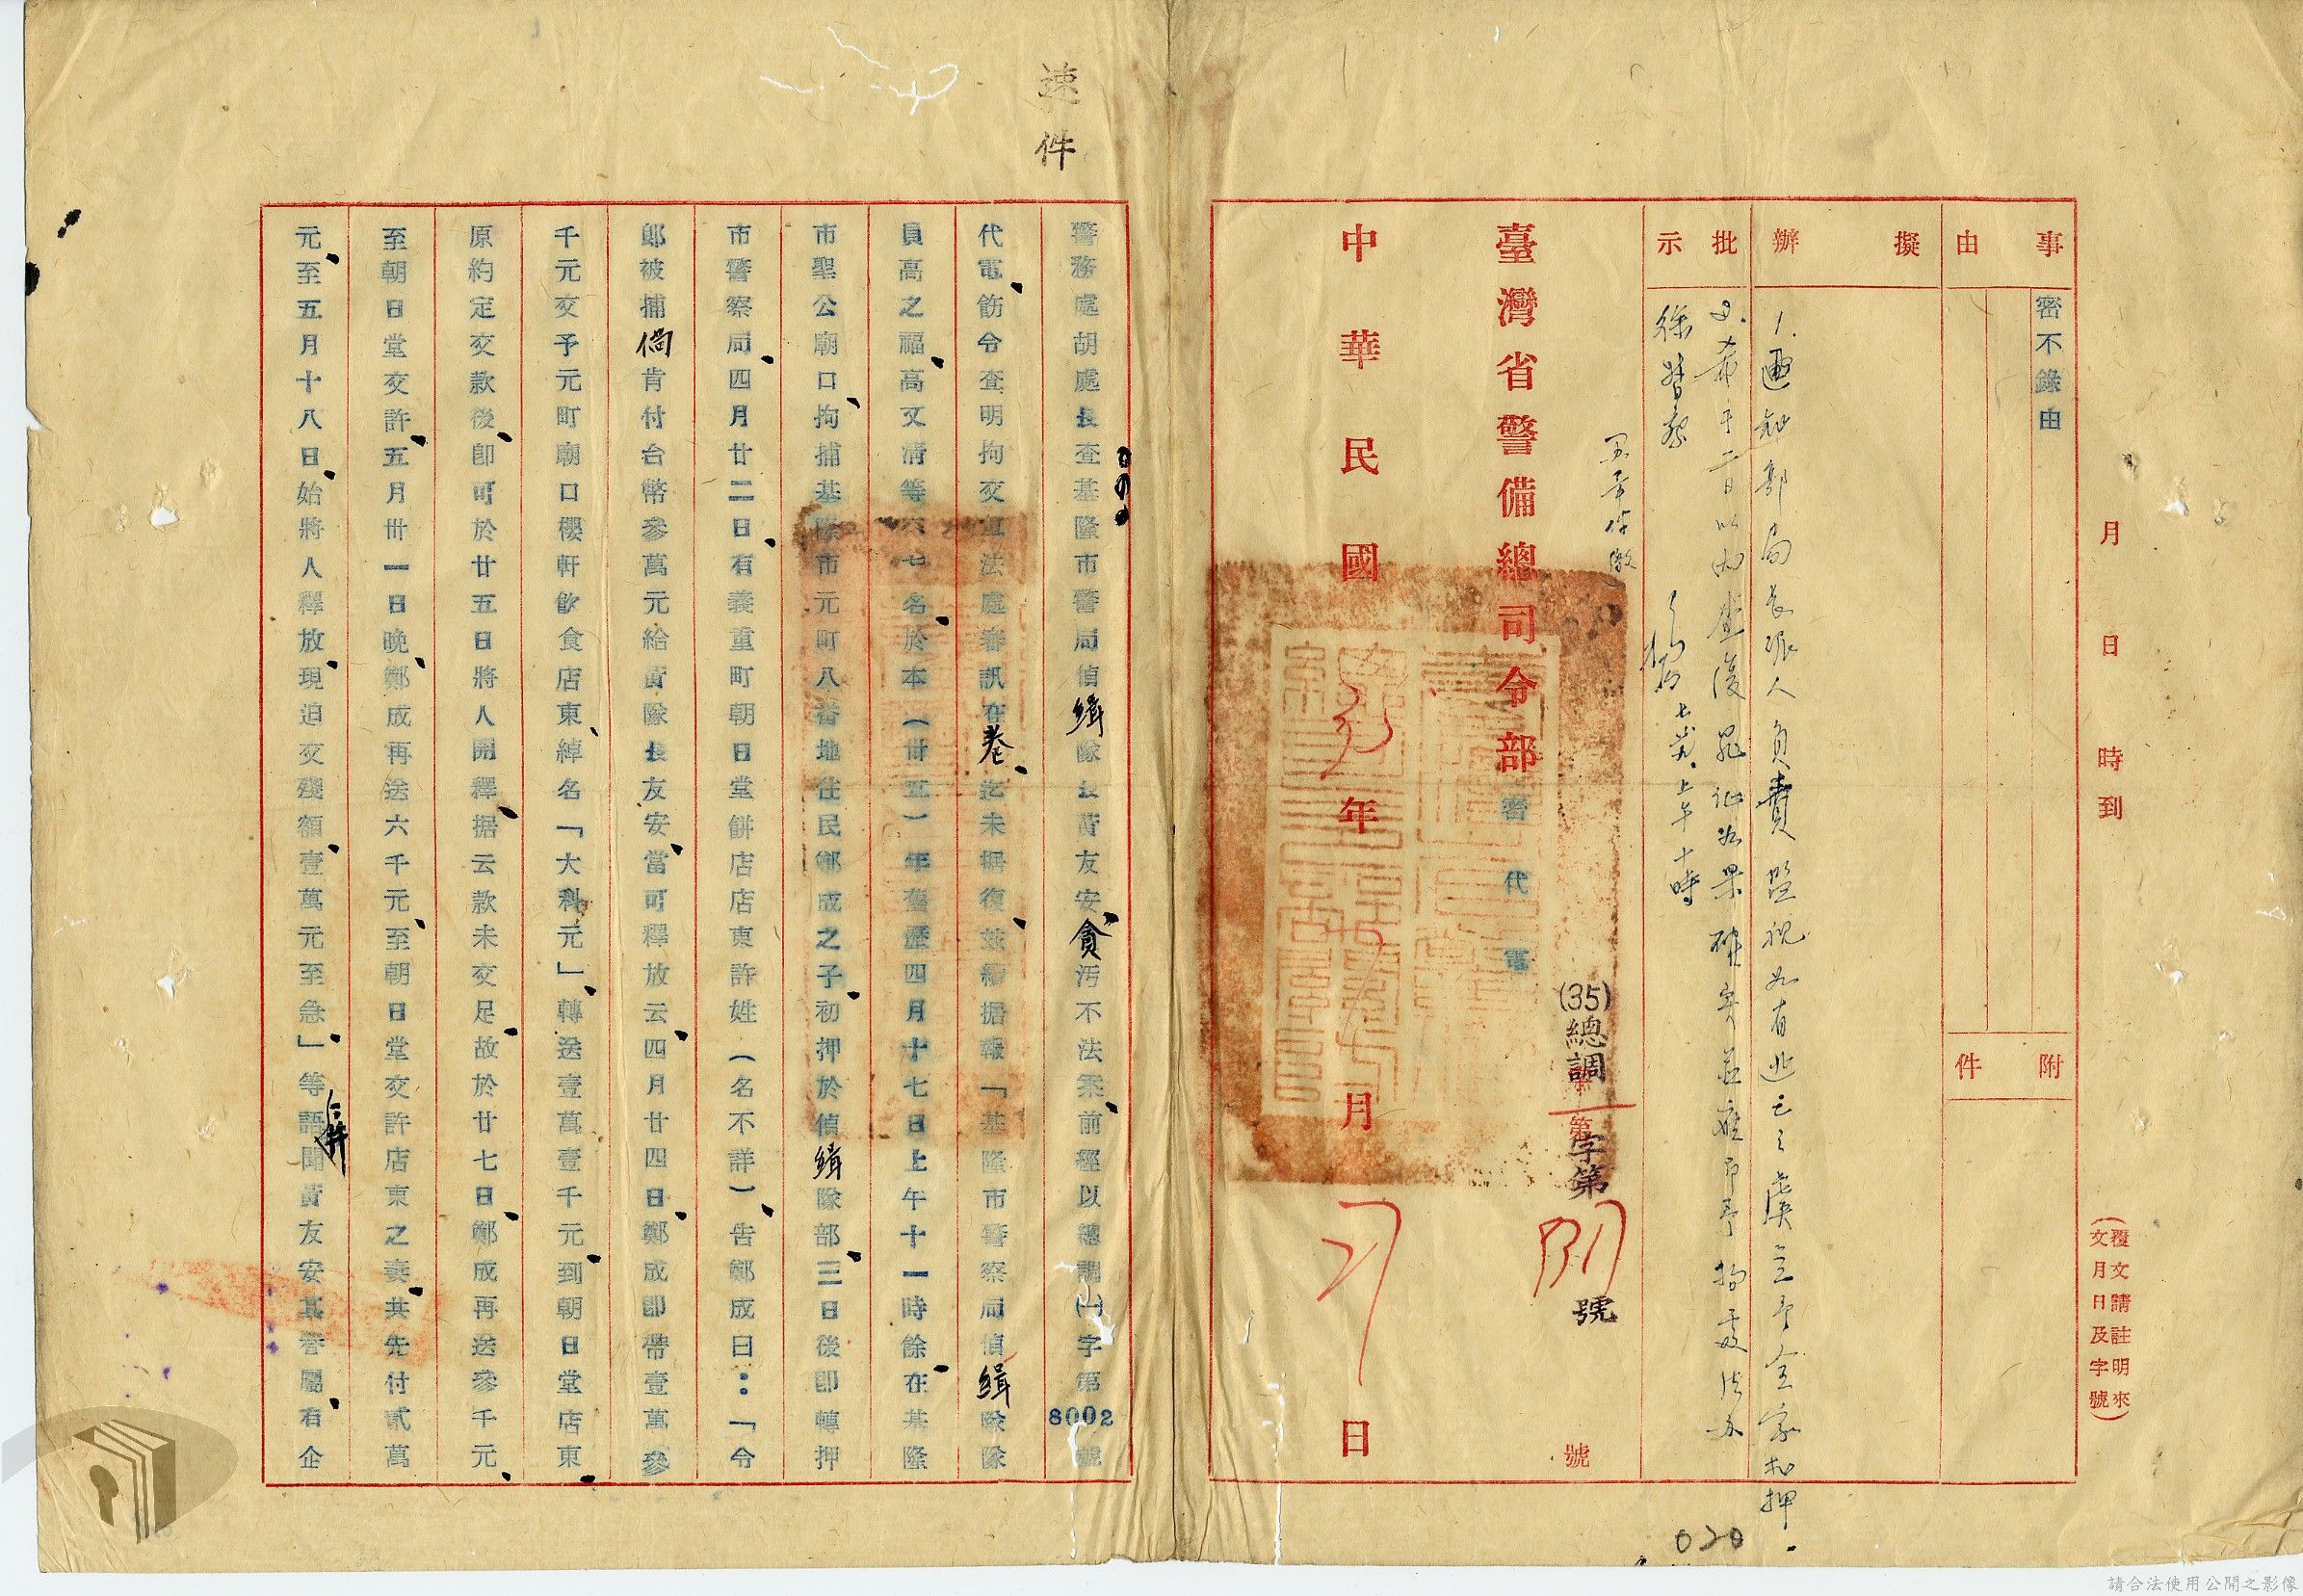 月 日 時到
(覆文請註明來
文月日及字號)
事由
密不錄由
附件
擬辦
1.
部局長張人負責監視如有逃亡之虞立予全家扣押.
批示
2.希于二日以內查復罪證如果確實並應即予拘
徐督察
七 上午十時
(35)總調
字第
號
第
號
臺灣省警備總司令部密代電
中華民國 年 月 日
020
速件
警務處胡處長查基隆市警局偵緝隊長黃友安貪污不法案前經以總調(一)字第8002號
代電飭令查明拘交軍法處審訊在卷迄未据復茲續据報「基隆市警察局偵緝隊隊
員高之福高文清等六七名於本(卅五)年舊歷四月十七日上午十一時餘在基隆
市聖公廟口拘捕基隆市元町八番地住民鄭成之子初押於偵緝隊部三日後即轉押
市警察局四月廿二日有義重町朝日堂餅店店東許姓(名不詳)告鄭成曰：「令
郎被捕倘肯付台幣參萬元給黃隊長友安當可釋放云四月廿四日鄭成即帶壹萬參
千元交予元町廟口櫻軒飲食店東綽名「大科元」轉送壹萬壹千元到朝日堂店東
原約定交款後即可於廿五日將人開釋据云款未交足故於廿七日鄭成再送參千元
至朝日堂交許五月卅一日晚鄭成再送六千元至朝日堂交許店東之妻共先付貳萬
元至五月十八日始將人釋放現迫交殘額壹萬元至急」等語
聞黃友安其眷屬有企
請合法使用公開之影像